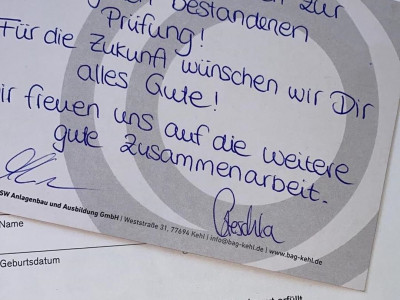 zur
bestandenen
Prüfung!
Für die Zukunft wünschen wir Dir
alles Gute!
ir freuen uns auf die weitere
gute Zusammenarbeit.
SW Anlagenbau und Ausbildung GmbH | Weststraße 31, 77694 Kehl | info@bag-kehl.de | www.bag-kehl.de
Name
Geburtsdatum